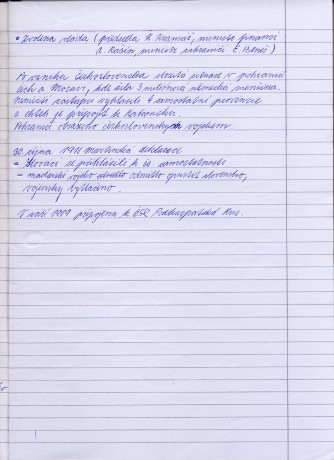 • Zvolena vláda (předseda K. Kramář, ministr financí
A. Rašín, ministr zahraničí E. Beneš)
Po vzniku Československa složitá situace v pohraničí
Čech a Moravy, kde žila 3 milionová německá menšina.
Němečtí zástupci vyhlásili 4 samostatné provincie
a chtěli je připojit k Rakousku.
Pohraničí obsazeno československým vojskem.
30. října 1918 Martinská deklarace
– Slováci se přihlásili k čs. samostatnosti
– maďarské vojsko odmítlo opustit Slovensko,
vojensky vytlačeno.
V září 1919 připojena k ČSR Podkarpatská Rus.